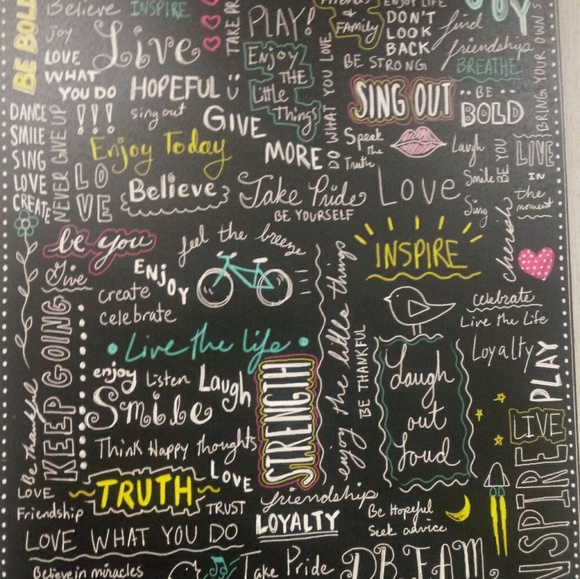 BE BOLD
Believe INSPIRE
Joy
Live
LOVE
WHAT
YOU DO
HOPEFUL
TAKE PR
PLAY!
Enjoy
THE
Little
Things
Family
BE STRONG
ENJOY LIFE
DON'T
LOOK
BACK
find
friendship
BREATHE
JOY
BRING YOUR OWN S
DANCE
SMILE
SING
LOVE
CREATE
NEVER GIVE UP
!!!
sing out
GIVE
MORE
DO WHAT YOU LOVE
SING OUT
BE
BOLD
Enjoy Today
LO
VE
Believe
Speak
The
Truth
Laugh
Smile
Sing
BE YOU
LIVE
IN
the
moment
Take Pride
BE YOURSELF
Love
cherish
be you
feel the breeze
INSPIRE
Give
ENJOY
create
celebrate
KEEP GOING
enjoy the little things
BE THANKFUL
celebrate
Live the Life
Loyalty
PLAY
Live the life
enjoy Listen Laugh
Smile
STRENGTH
Laugh
out
loud
Think Happy thoughts
LOVE
Be thankful
LIVE
INSPIRE
LOVE
Friendship
TRUTH
TRUST
friendship
LOYALTY
Be Hopeful
Seek advice
LOVE WHAT YOU DO
Believe in miracles
Take Pride
DREAM